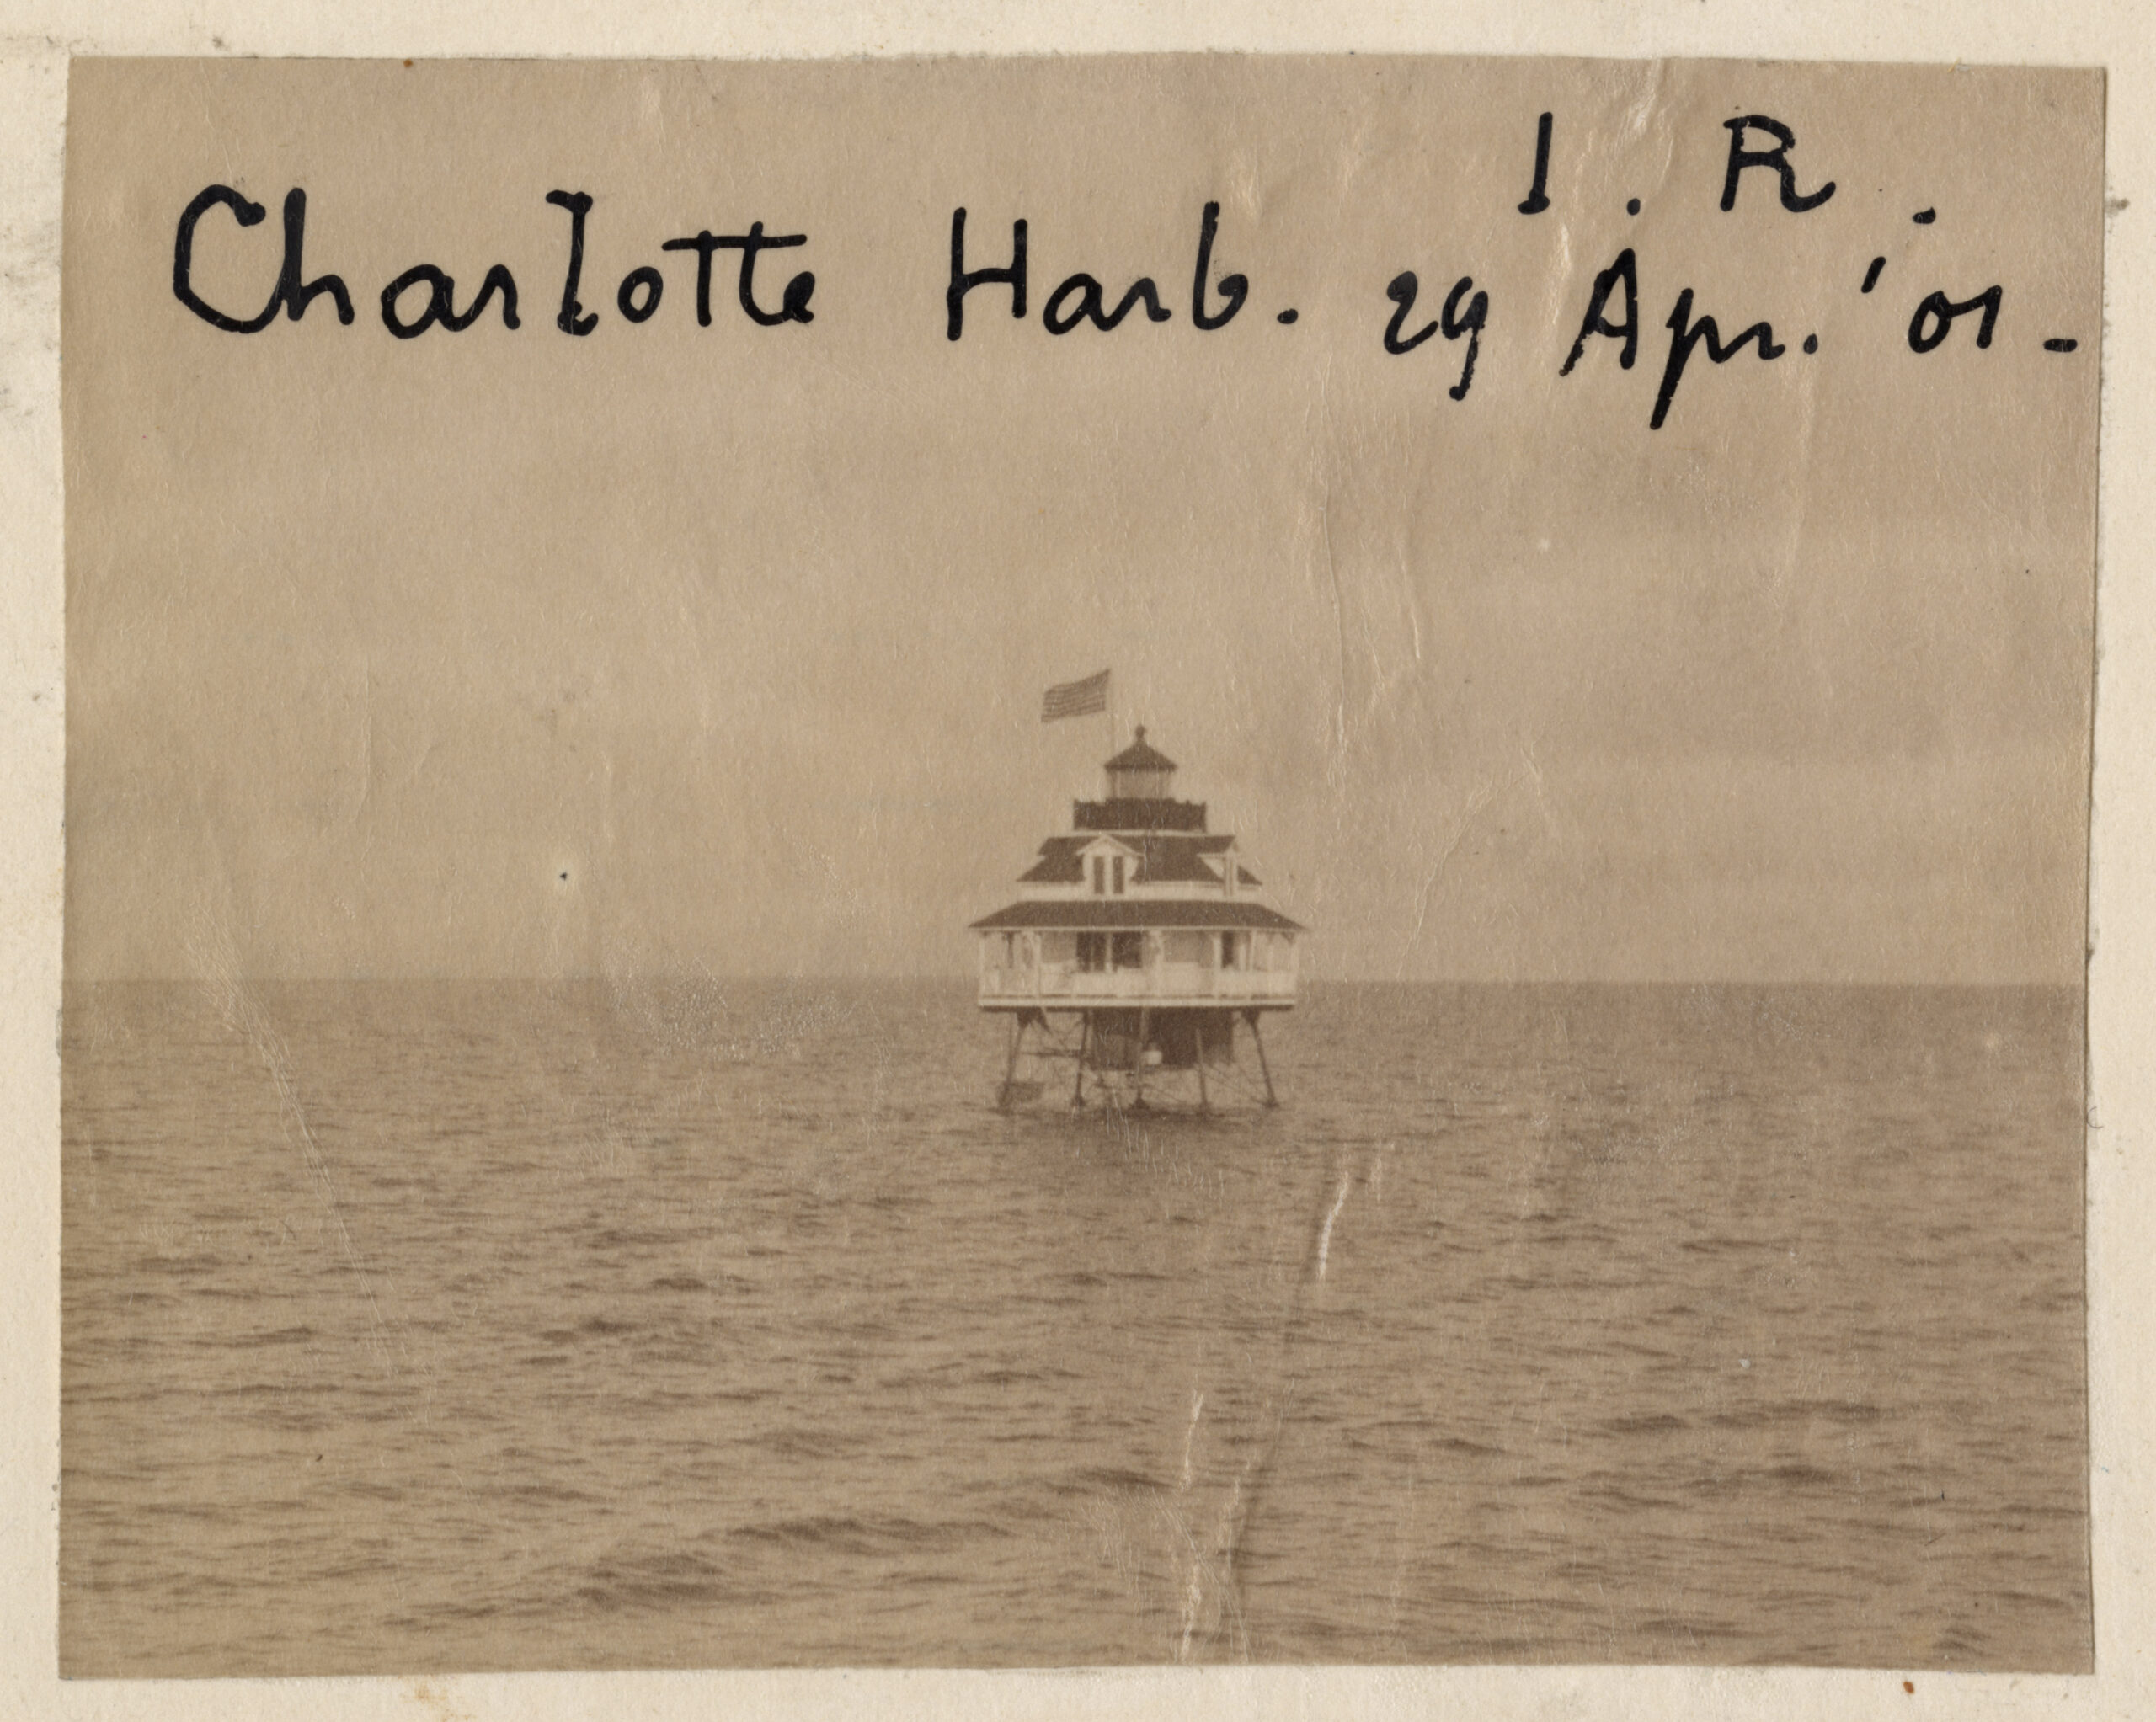 I. R.
Charlotte Harb. 29 Apr. '01-